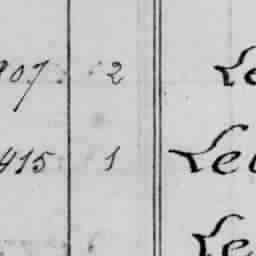 907 2 Le
415 1 Leu
Le